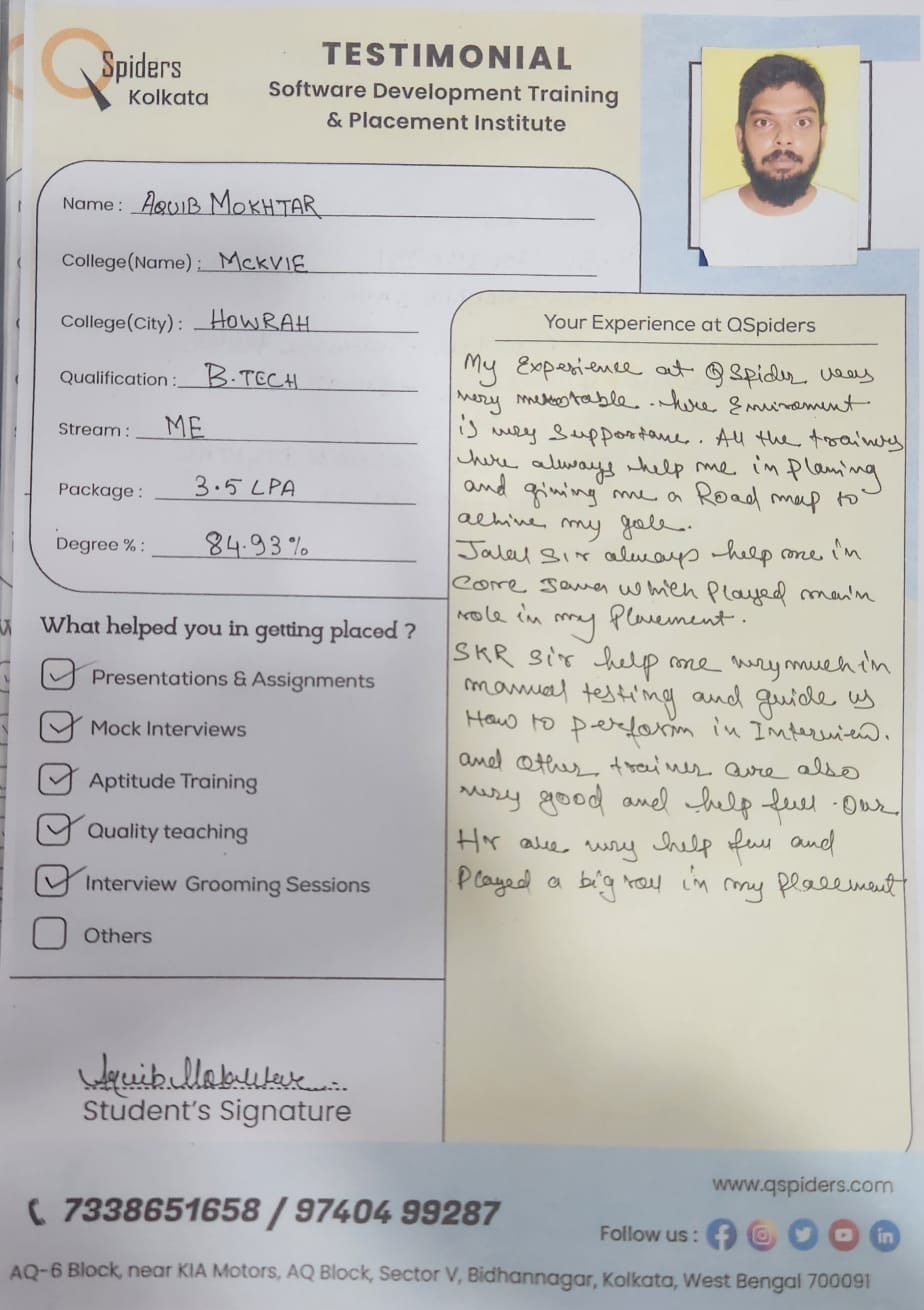 QSpiders
Kolkata
TESTIMONIAL
Software Development Training
& Placement Institute
Name : AQUIB MOKHTAR
College(Name) : MCKVIE
College(City) : HOWRAH
Qualification : B.TECH
Stream : ME
Package : 3.5 LPA
Degree % : 84.93%
What helped you in getting placed ?
Presentations & Assignments
Mock Interviews
Aptitude Training
Quality teaching
Interview Grooming Sessions
Others
Your Experience at QSpiders
My Experience at QSpider was
very . here Enviroment
is very . All the trainers
here always help me in planing
and giving me a Road map to
achive my gole.
Jalal Sir always help me in
Core Java which Played main
role in my .
SKR Sir help me very much in
manual testing and guide us
How to perform in Interview.
and other trainer are also
very good and help full . Our
Hr are very help full and
Played a big roll in my Placement
Aquib Mokhtar
Student's Signature
7338651658 / 97404 99287
www.qspiders.com
Follow us :
AQ-6 Block, near KIA Motors, AQ Block, Sector V, Bidhannagar, Kolkata, West Bengal 700091